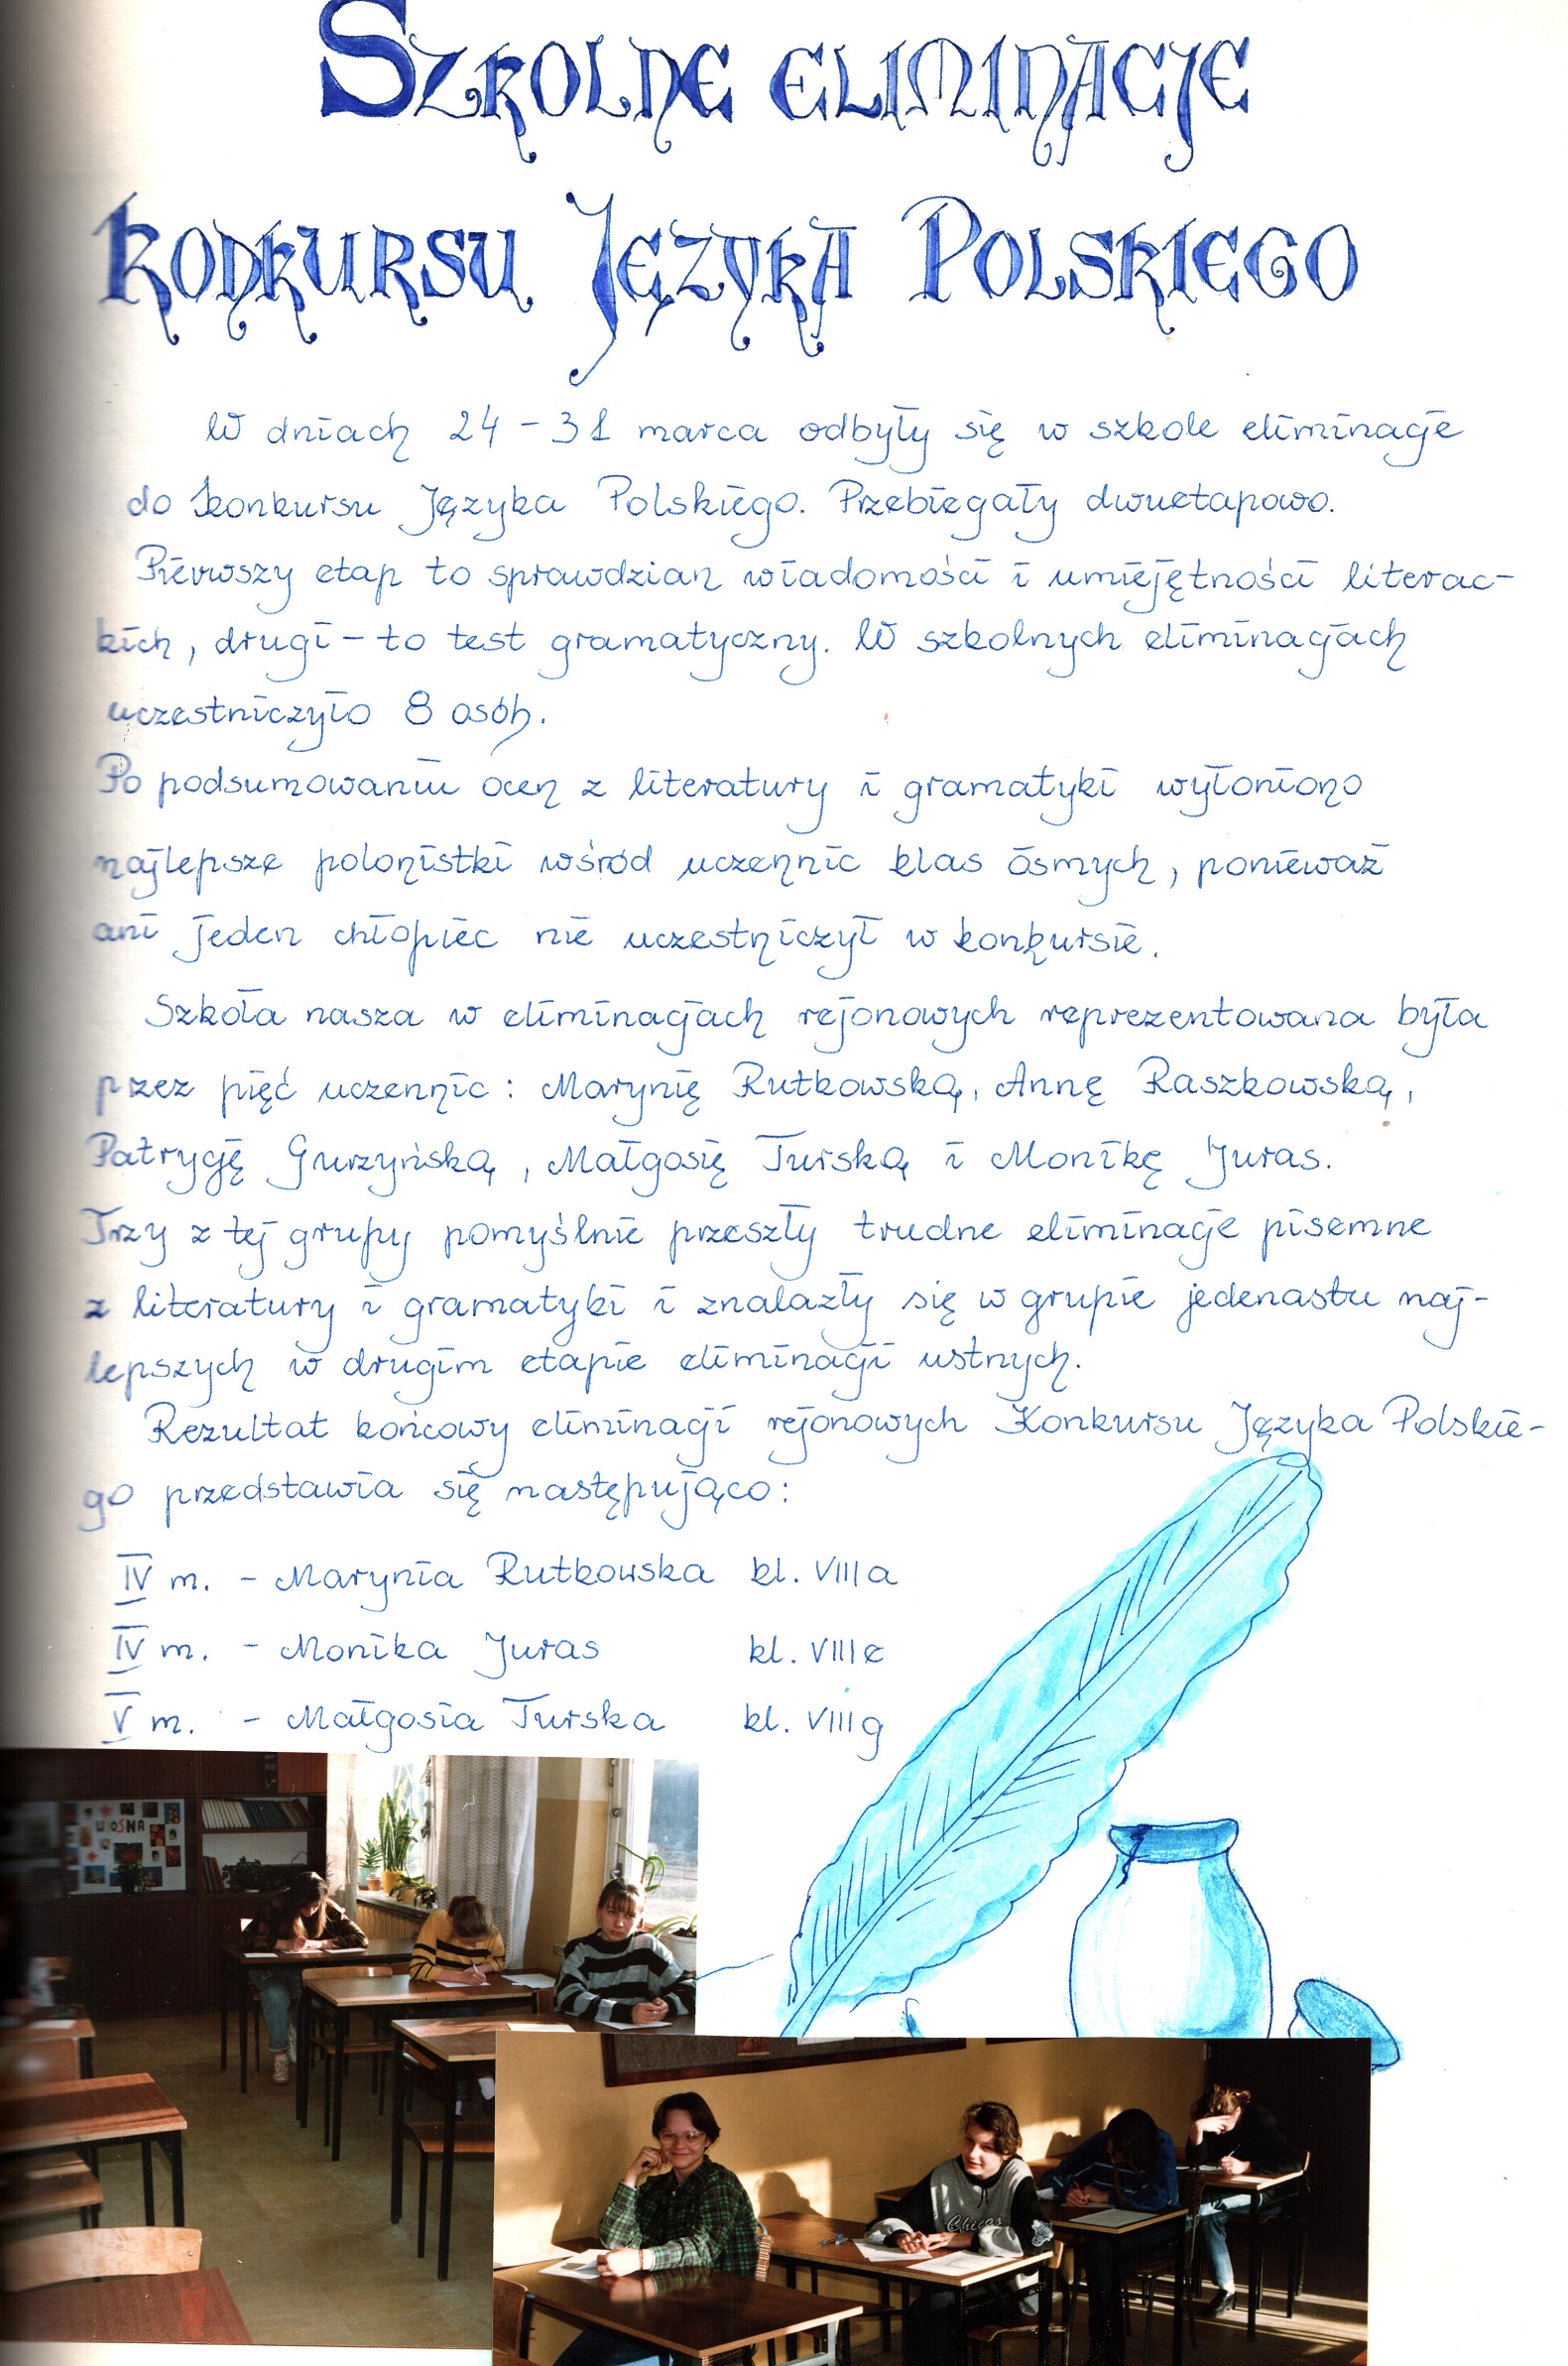 SZKOLNE ELIMINACJE
KONKURSU JĘZYKA POLSKIEGO
W dniach 24 - 31 marca odbyły się w szkole eliminacje
do Konkursu Języka Polskiego. Przebiegały dwuetapowo.
Pierwszy etap to sprawdzian wiadomości i umiejętności literac-
kich, drugi - to test gramatyczny. W szkolnych eliminacjach
uczestniczyło 8 osób.
Po podsumowaniu ocen z literatury i gramatyki wyłoniono
najlepsze polonistki wśród uczennic klas ósmych, ponieważ
ani jeden chłopiec nie uczestniczył w konkursie.
Szkoła nasza w eliminacjach rejonowych reprezentowana była
przez pięć uczennic: Marynię Rutkowską, Annę Raszkowską,
Patrycję Gurzyńską, Małgosię Turską i Monikę Juras.
Trzy z tej grupy pomyślnie przeszły trudne eliminacje pisemne
z literatury i gramatyki i znalazły się w grupie jedenastu naj-
lepszych w drugim etapie eliminacji ustnych.
Rezultat końcowy eliminacji rejonowych Konkursu Języka Polskie-
go przedstawia się następująco:
IV m. - Marynia Rutkowska kl. VIII a
IV m. - Monika Juras kl. VIII e
V m. - Małgosia Turska kl. VIII g
WIOSNA